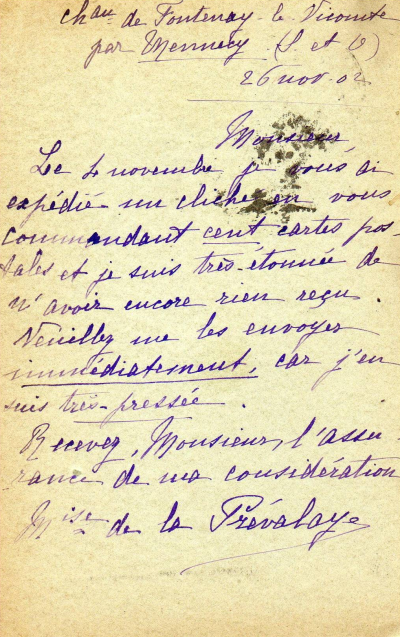 Chau de Fontenay-le Vicomte
par Mennecy (S. et O)
26 nov. 02
Monsieur,
Le 4 novembre je vous ai
expédié un cliché en vous
commandant cent cartes pos-
tales et je suis très-étonnée de
n'avoir encore rien reçu.
Veuillez me les envoyer
immédiatement, car j'en
suis très-pressée.
Recevez, Monsieur, l'assu-
rance de ma considération
Mise de la Prévalaye